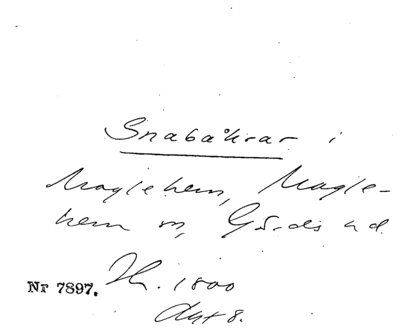 Snabaåkrar i
Maglehem, Magle-
hem sn, Gärds hd.
Nr 7897. Th. 1800
Akt 8.